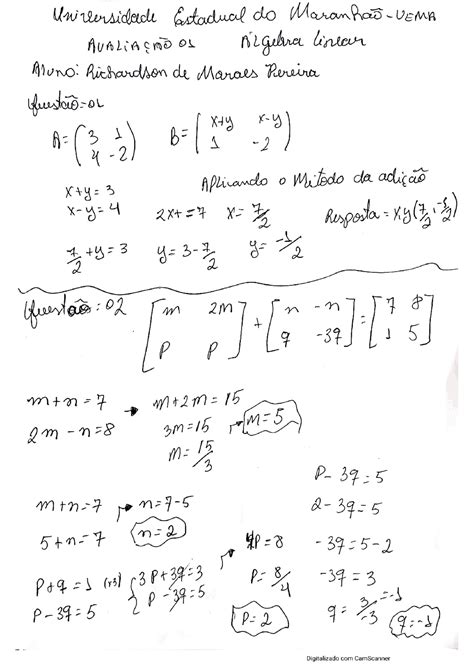 Universidade Estadual do Maranhão - UEMA
AVALIAÇÃO 01 Álgebra linear
Aluno: Richardson de Moraes Pereira
Questão-01
A = (3 1
4 -2) B = (x+y x-y
1 -2)
x+y=3 Aplicando o Método da adição
x-y=4 2x+=7 x=7/2 Resposta = x,y(7/2,-1/2)
7/2+y=3 y=3-7/2 y=-1/2
Questão: 02 [m 2m
p p] + [n -n
q -3q] = [7 8
1 5]
m+n=7 → m+2m=15
2m-n=8 3m=15 → m=5
m=15/3
p-3q=5
m+n=7 → n=7-5 2-3q=5
5+n=7 n=2 4p=8 -3q=5-2
p+q=1 (x3) {3p+3q=3 p=8/4 -3q=3
p-3q=5 p-3q=5 p=2 q=3/-3=-1 q=-1
Digitalizado com CamScanner